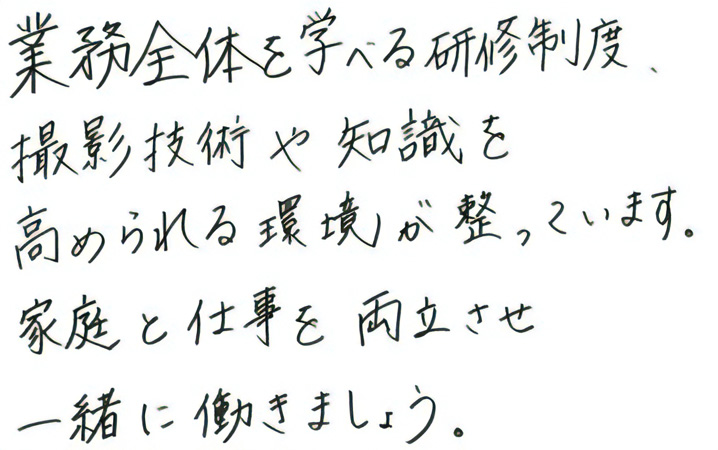 業務全体を学べる研修制度、
撮影技術や知識を
高められる環境が整っています。
家庭と仕事を両立させ
一緒に働きましょう。